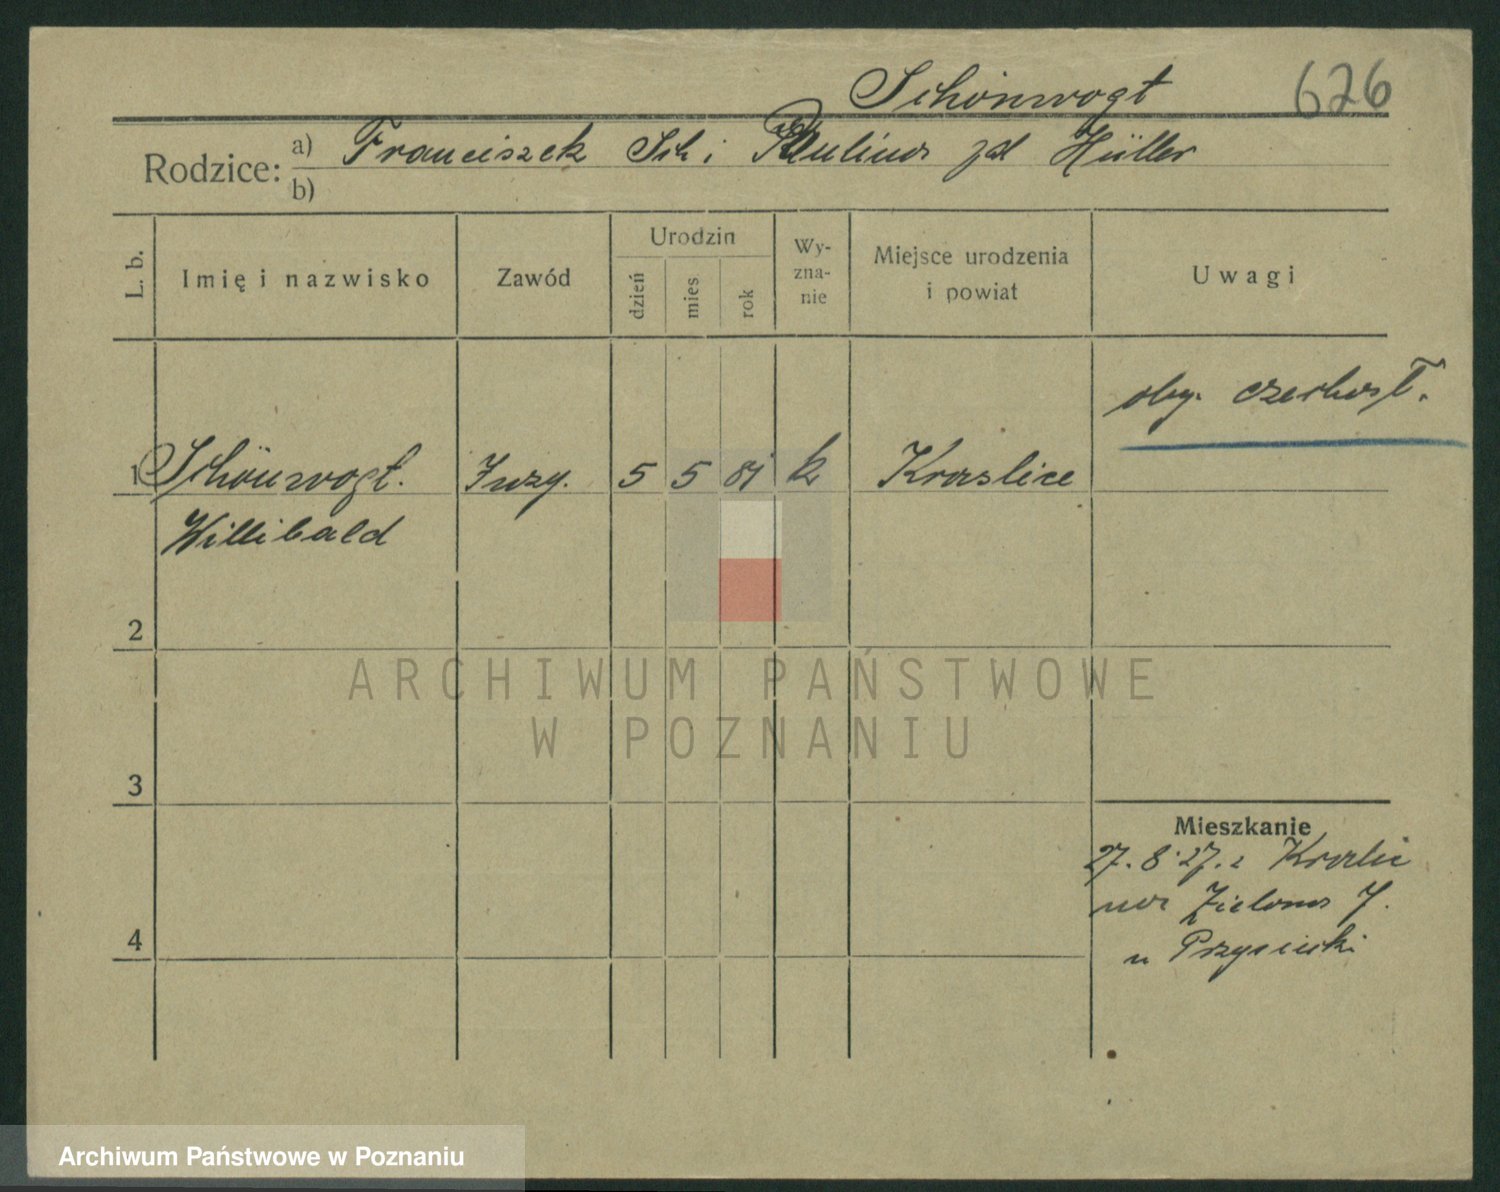 Schönwogt 626
Rodzice: a) Franciszek Sch i Paulina zd Hüller
b)
L. b. Imię i nazwisko Zawód Urodzin dzień mies rok Wy-zna-nie Miejsce urodzenia i powiat Uwagi
oby. czechosł.
1 Schönwogt. Inży. 5 5 81 k Kraslice
Willibald
2
ARCHIWUM PAŃSTWOWE
W POZNANIU
3
Mieszkanie
27. 8. 27. z Kraslic
na Zielona 7.
4
u
Archiwum Państwowe w Poznaniu